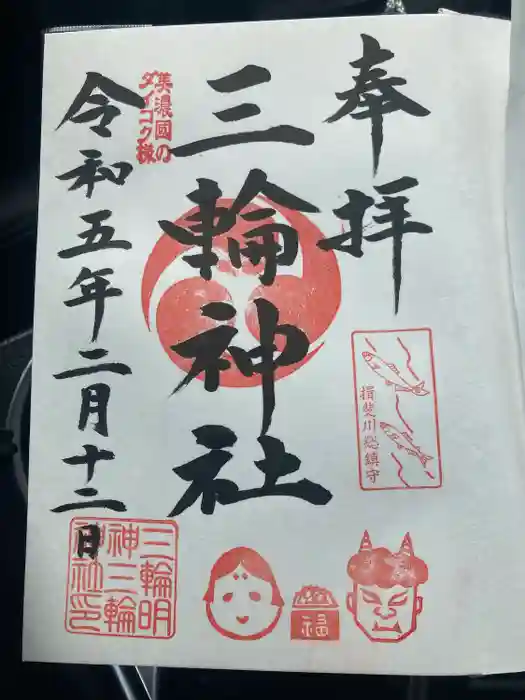 奉拝
揖斐川総鎮守
三輪神社
美濃國の
ダイコク様
令和五年二月十二日
三輪明
神三輪
神社印
福